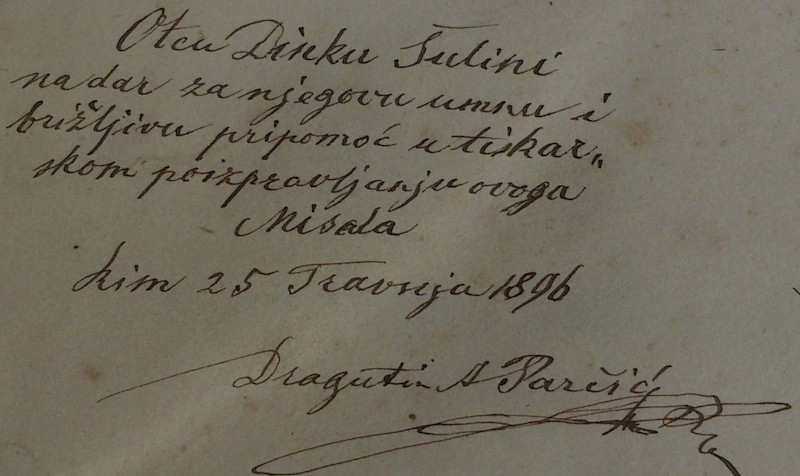 Otcu Dinku Šulini
na dar za njegovu umnu i
brižljivu pripomoć u tiskar„
skom poizpravljanju ovoga
Misala
Rim 25 Travnja 1896
Dragutin A Parčić